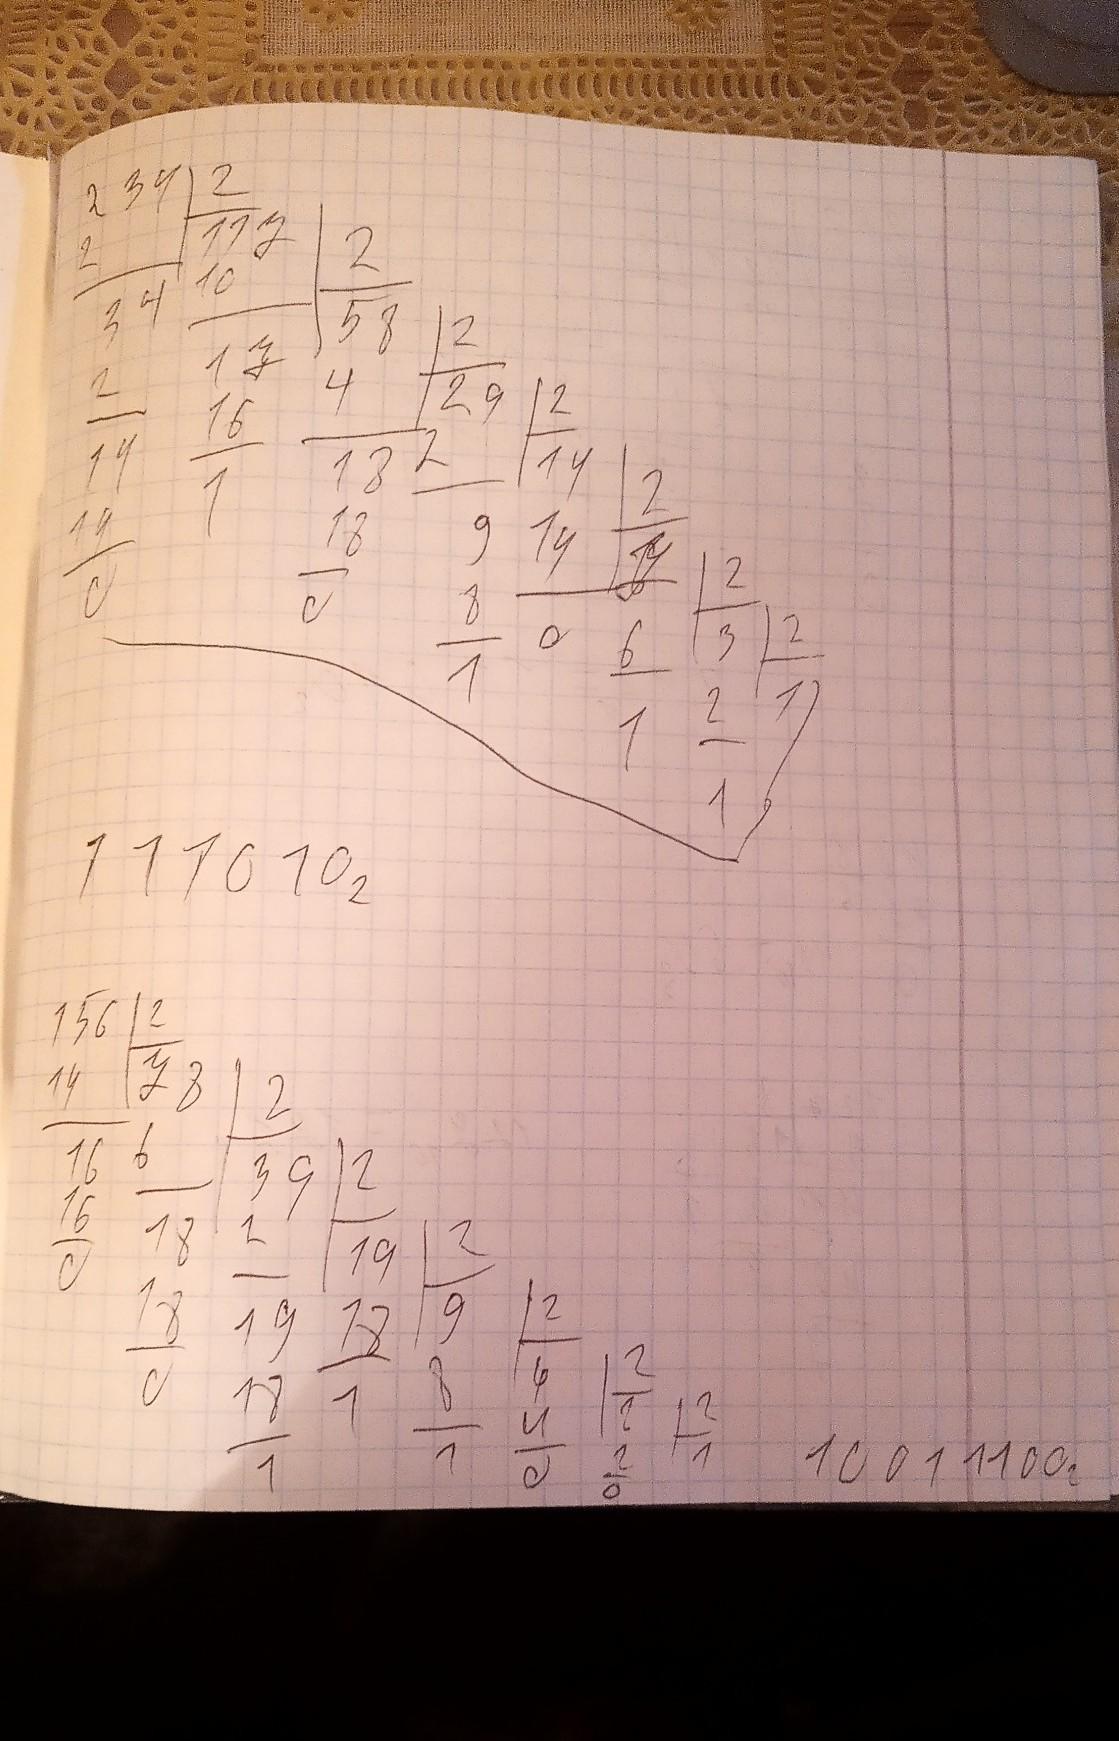 234 2
2 117
10 2
34 58 2
2 17 4 29 2
14 16 18 2 14 2
14 1 18 9 14
0 0 8 0 6 3 2
1 1 2 1
1
1110102
156 2
14 78 2
16 6 39 2
16 18 2 19 2
0 18 19 18 9 2
0 18 1 8 4 2
1 1 4 2 2
0 2 1
0
100111002